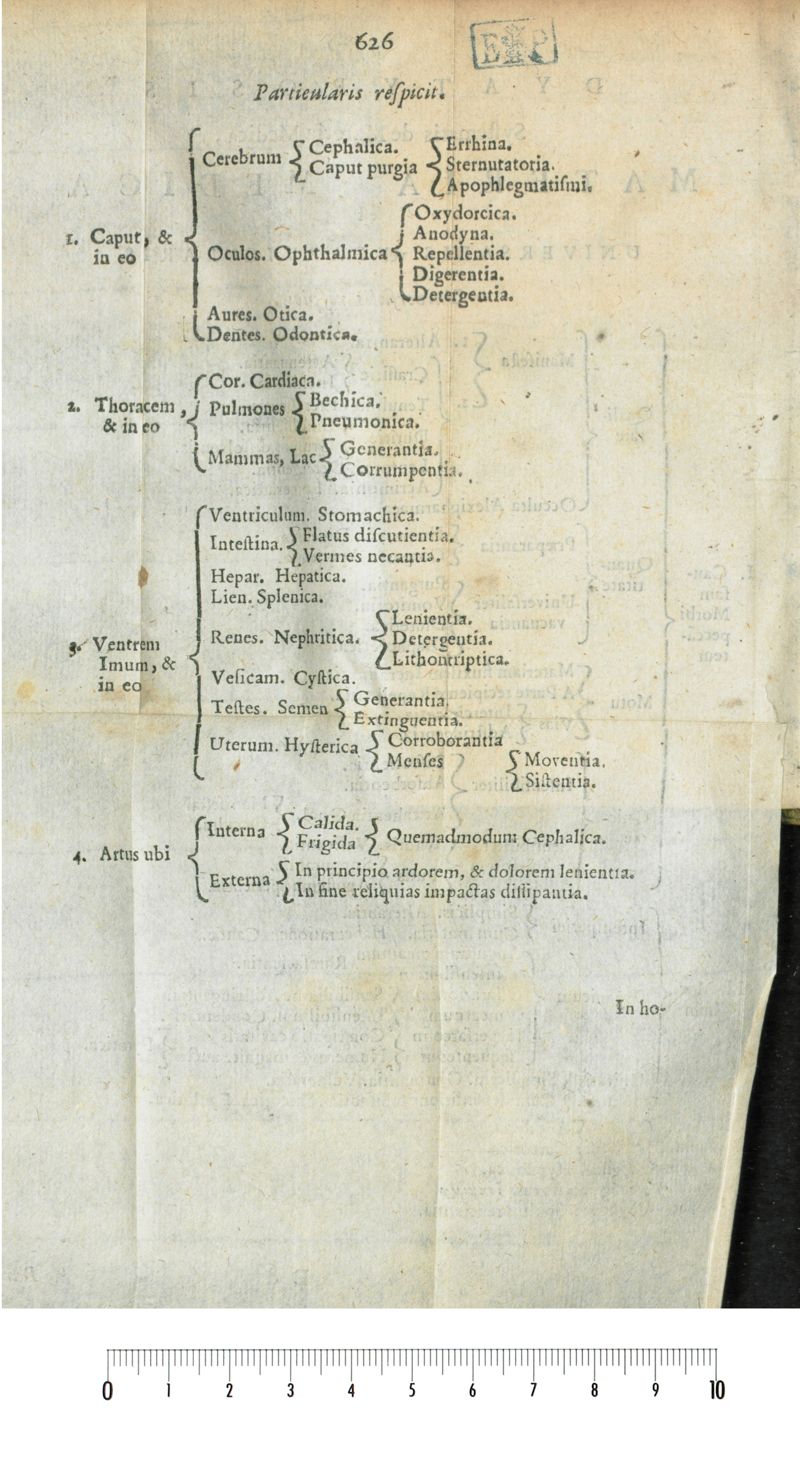 626
EP
Particularis reſpicit.
Cerebrum
Cephalica.
Caput purgia
Errhina.
Sternutatoria.
Apophlegmatiſmi.
1. Caput, &
in eo
Oculos. Ophthalmica
Oxydorcica.
Anodyna.
Repellentia.
Digerentia.
Detergentia.
Aures. Otica.
Dentes. Odontica.
2. Thoracem,
& in eo
Cor. Cardiaca.
Pulmones
Bechica.
Pneumonica.
Mammas, Lac
Generantia.
Corrumpentia.
3. Ventrem
Imum, &
in eo
Ventriculum. Stomachica.
Inteſtina.
Flatus diſcutientia.
Vermes necantia.
Hepar. Hepatica.
Lien. Splenica.
Renes. Nephritica.
Lenientia.
Detergentia.
Lithontriptica.
Veſicam. Cyſtica.
Teſtes. Semen
Generantia.
Extinguentia.
Uterum. Hyſterica
Corroborantia
Menſes
Moventia.
Siſtentia.
4. Artus ubi
Interna
Calida.
Frigida
Quemadmodum Cephalica.
Externa
In principio ardorem, & dolorem lenientia.
In fine reliquias impactas diſſipantia.
In ho-
0 1 2 3 4 5 6 7 8 9 10